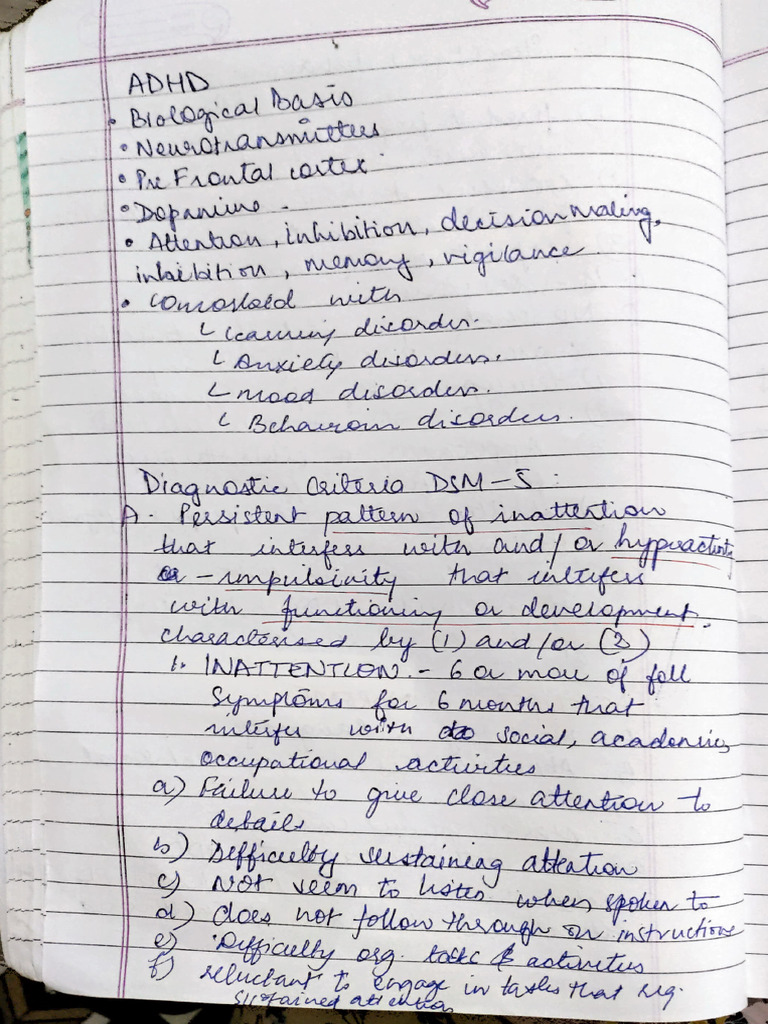 ADHD
• Biological Basis
• Neurotransmitters
• Pre Frontal cortex
• Dopamine.
• Attention, inhibition, decision making,
inhibition, memory, vigilance
• Comorbid with
└ Learning disorders.
└ Anxiety disorders.
└ mood disorders.
└ Behaviour disorders.
Diagnostic Criteria DSM-5 :
A. Persistent pattern of inattention
that interfess with and/or hyperactivity
- impulsivity that interfess
with functioning or development.
characterised by (1) and/or (2)
1. INATTENTION. - 6 or more of foll
symptoms for 6 months that
interfer with social, academic,
occupational activities
a) Failure to give close attention to
details
b) Difficulty sustaining attention
c) Not seem to listen when spoken to
d) does not follow through on instructions
e) Difficulty org. tasks & activities
f) reluctant to engage in tasks that req.
sustained attention